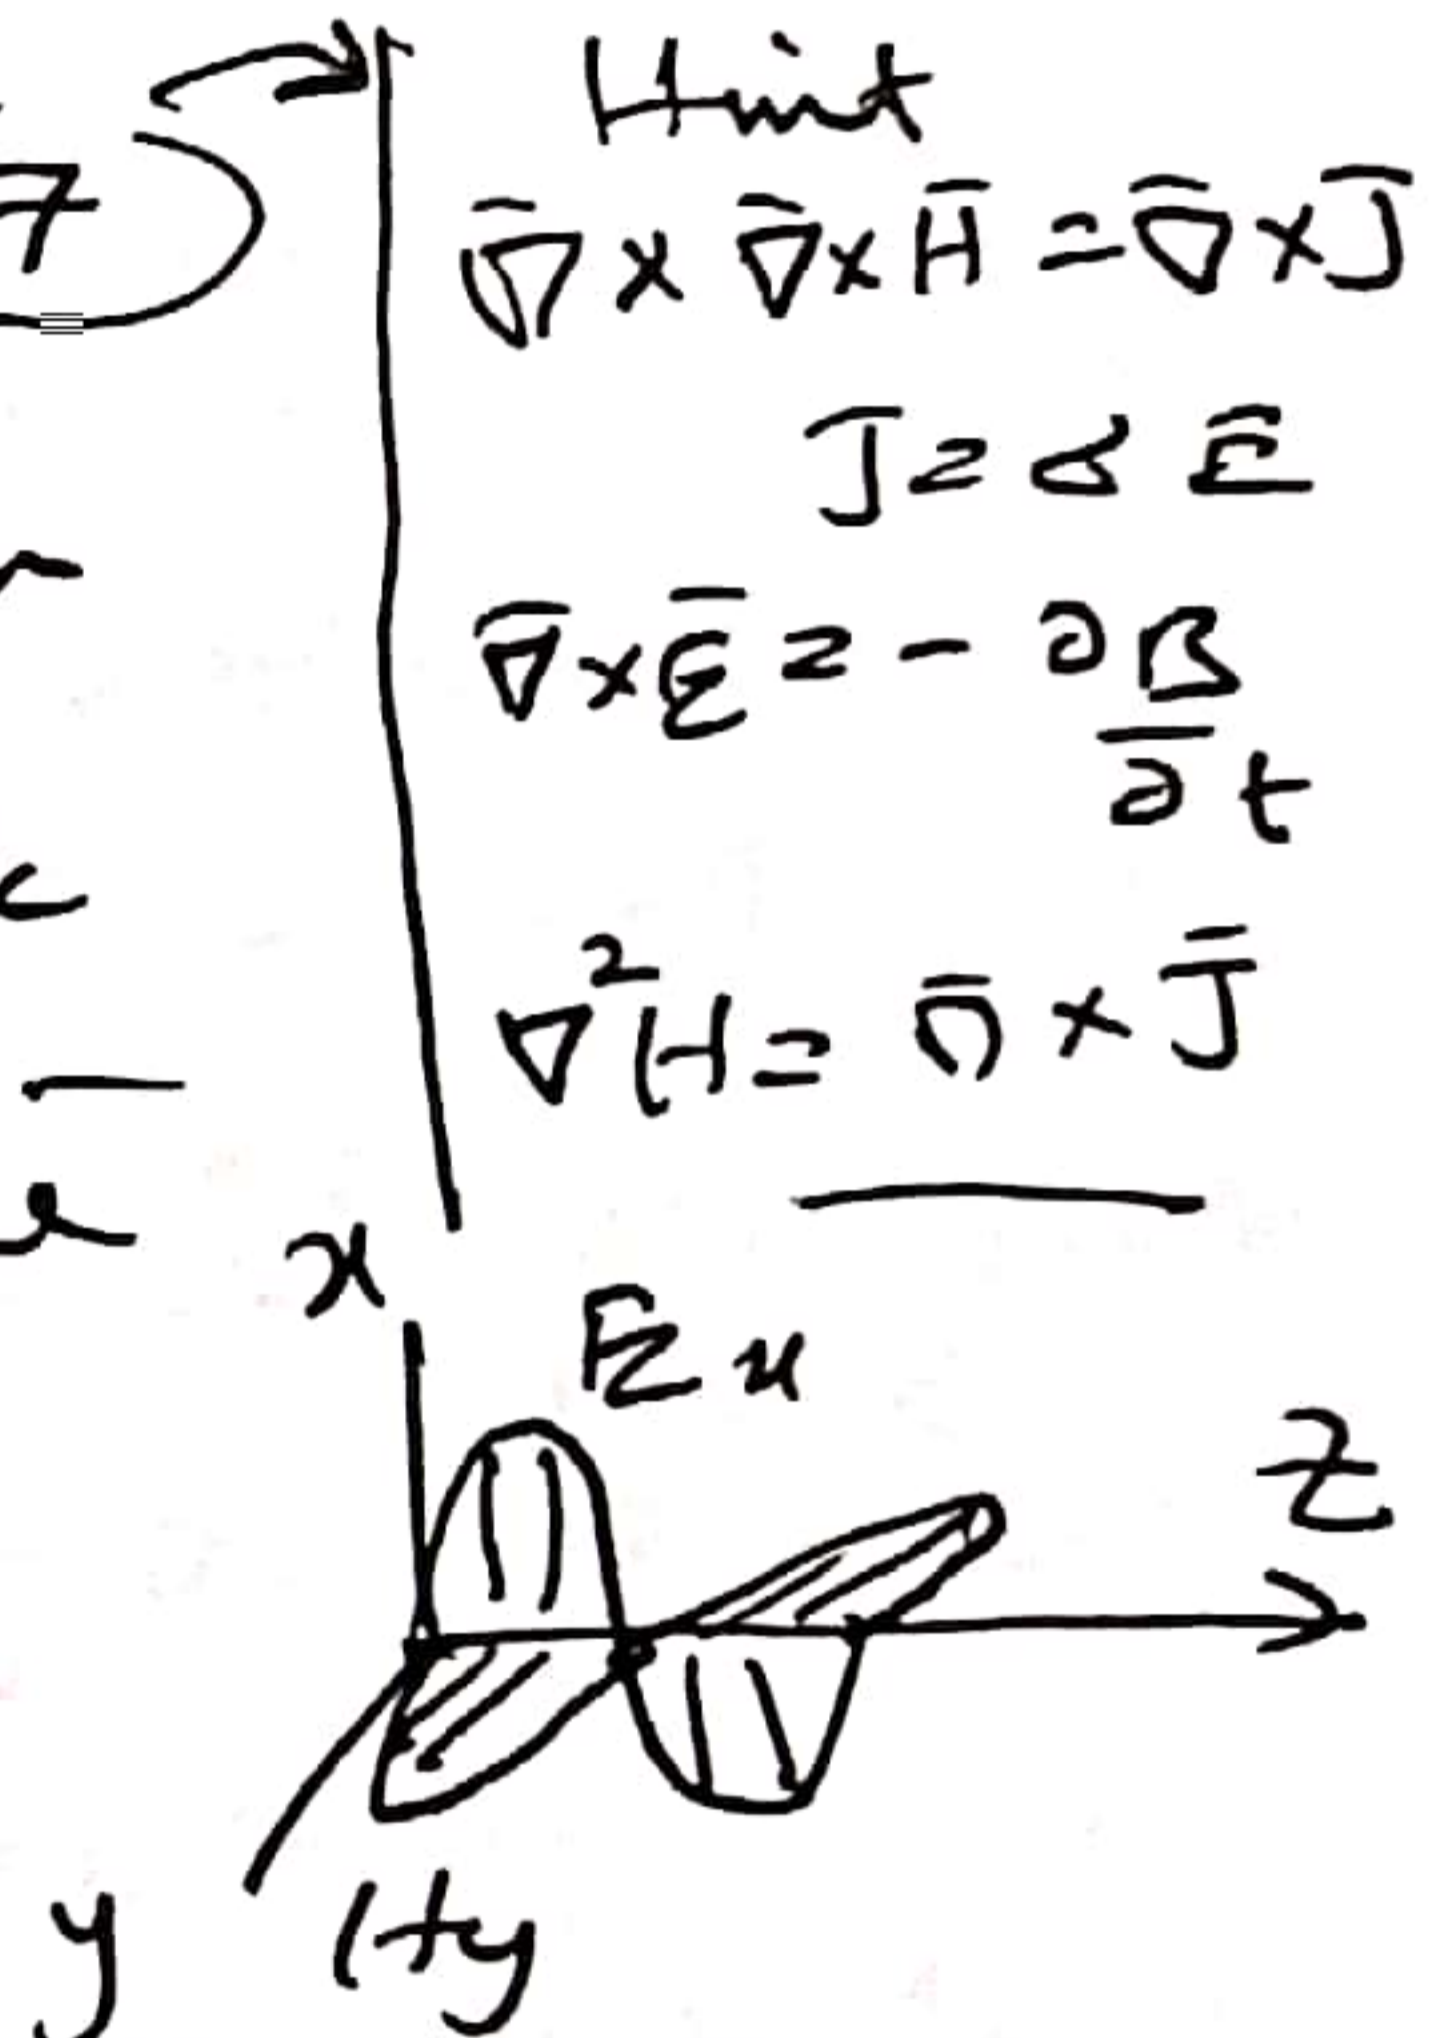 7
Hint
∇̄ × ∇̄ × H̄ = ∇̄ × J̄
J = σ Ē
∇̄ × Ē = - ∂B
∂t
∇²H = n̄ × J̄
c
e
x
Ex
Z
y
Hy